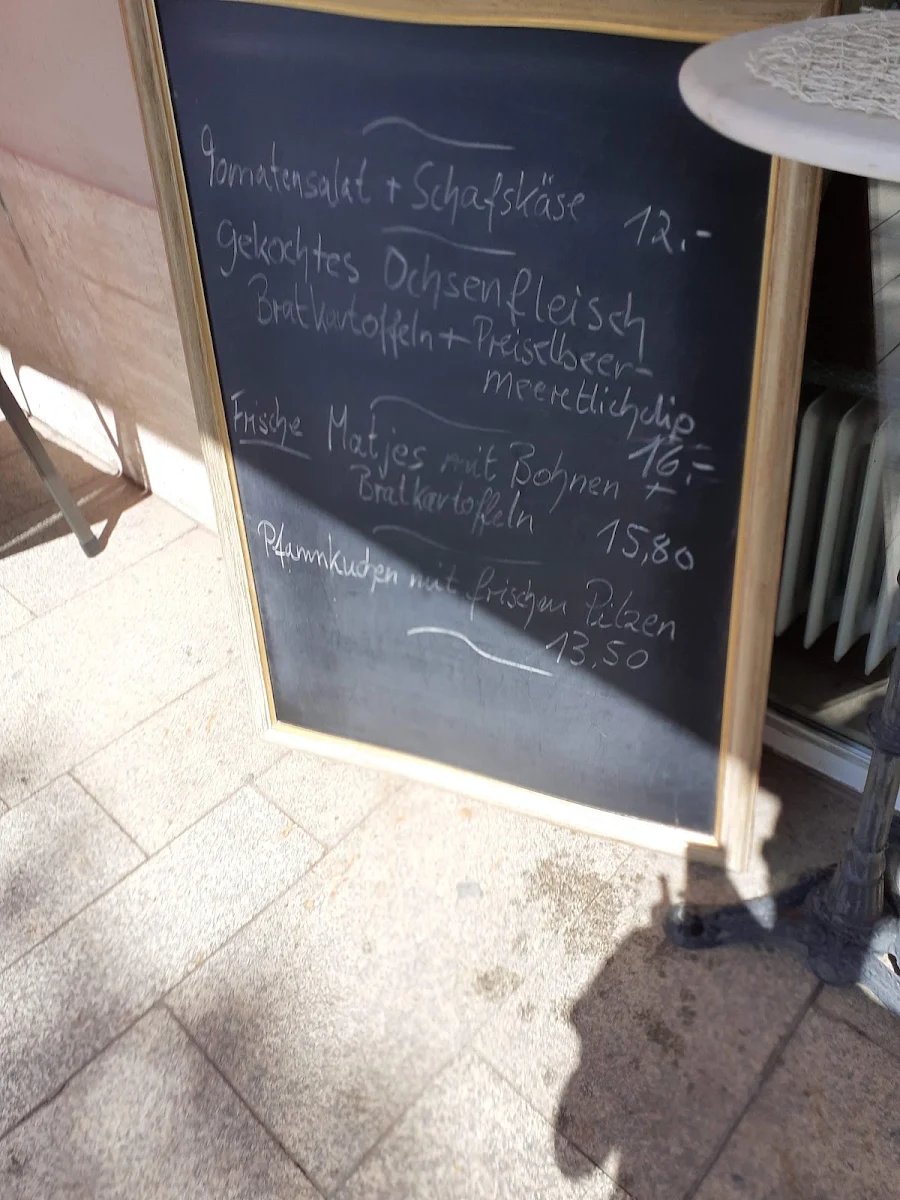 Tomatensalat + Schafskäse 12.-
gekochtes Ochsenfleisch
Bratkartoffeln + Preiselbeer-
meerettichdip
16.-
Frische Matjes mit Bohnen +
Bratkartoffeln 15,80
Pfannkuchen mit frischen Pilzen
13,50